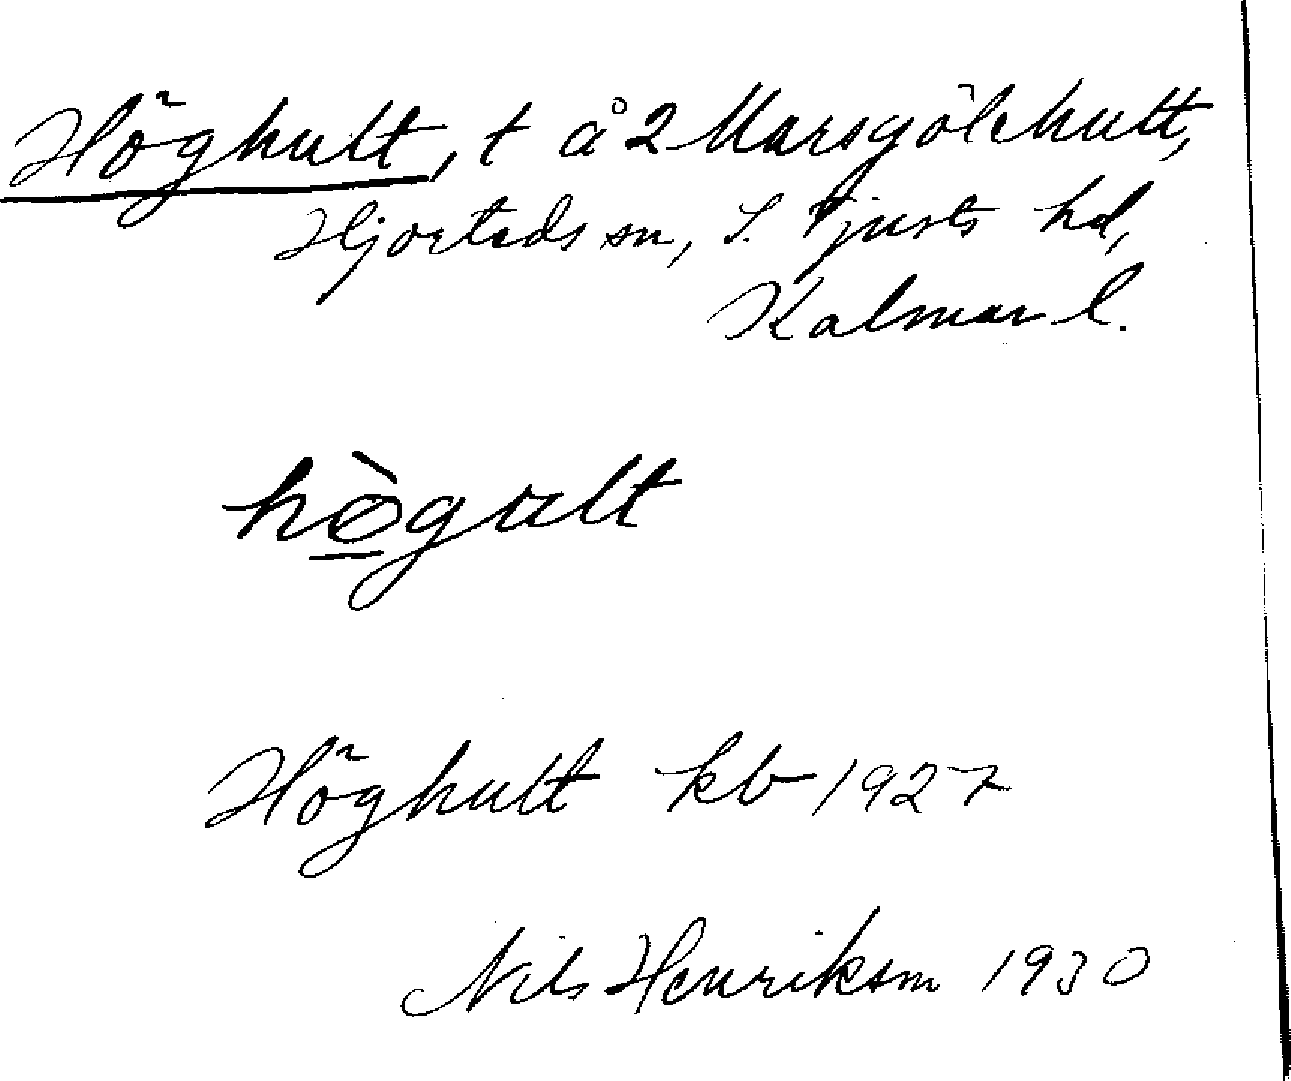 Höghult, t å 2 Marsgölehult,
Hjorteds sn, S. Tjusts hd,
Kalmar l.
hògult
Höghult kb 1927
Nils Henrikson 1930